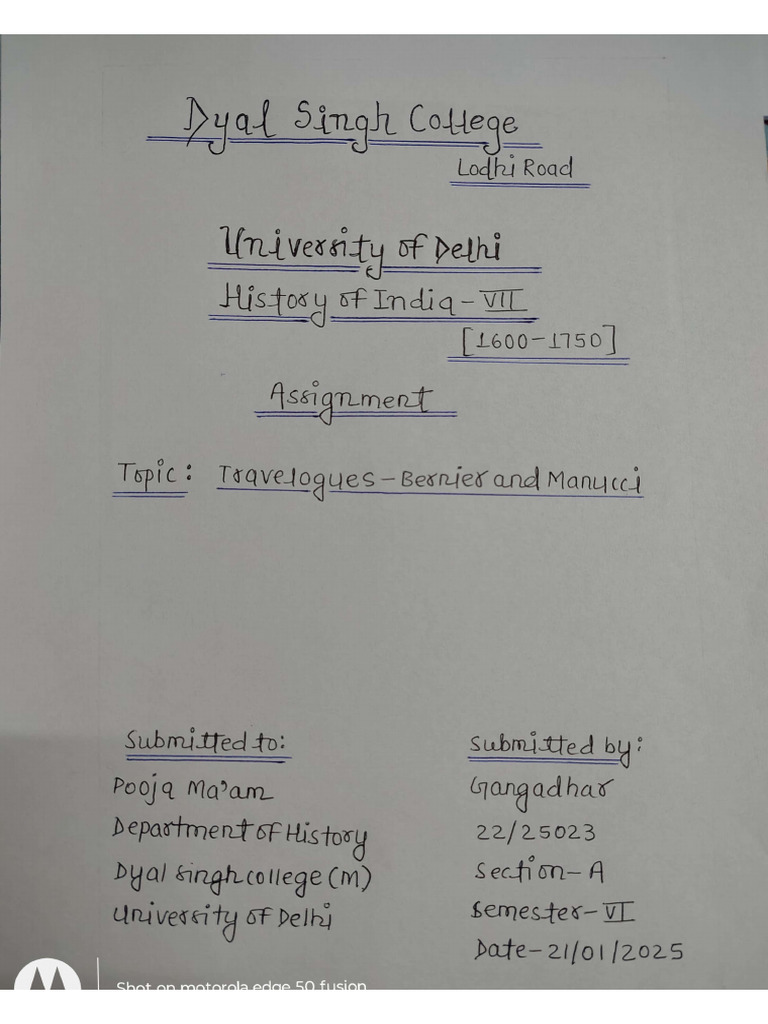 Dyal Singh College
Lodhi Road
University of Delhi
History of India - VII
[1600-1750]
Assignment
Topic: Travelogues - Bernier and Manucci
Submitted to:
Pooja Ma'am
Department of History
Dyal singh college (M)
University of Delhi
Submitted by:
Gangadhar
22/25023
Section - A
Semester - VI
Date - 21/01/2025
Shot on motorola edge 50 fusion